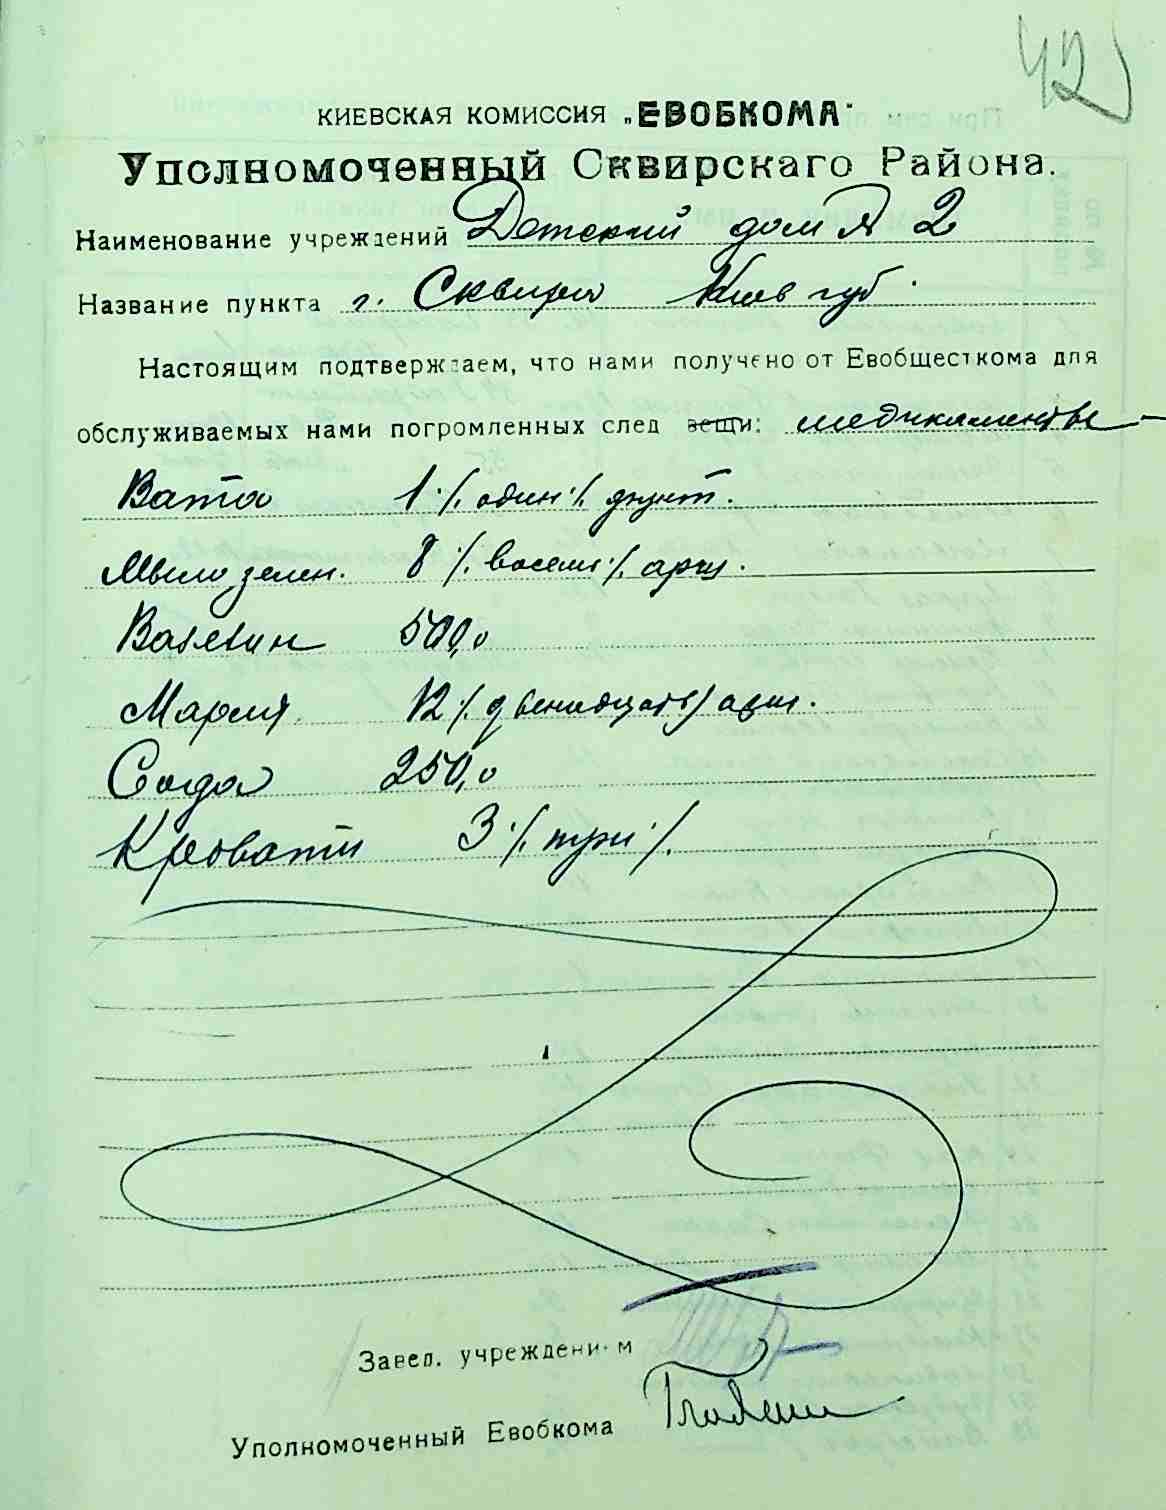 425
КИЕВСКАЯ КОМИССИЯ „ЕВОБКОМА"
Уполномоченный Сквирскаго Района.
Наименование учреждений Детский дом № 2
Название пункта г. Сквира Киев губ.
Настоящим подтверждаем, что нами получено от Евобщесткома для
обслуживаемых нами погромленных след вещи: медикаменты —
Вата 1 /. один /. фунт.
Мыло зелен. 8 /. восемь /. арш.
Вазелин 500,0
Марля 12 /. двенадцать / арш.
Сода 250,0
Кровати 3 /. три /.
Завед. учреждением
Уполномоченный Евобкома